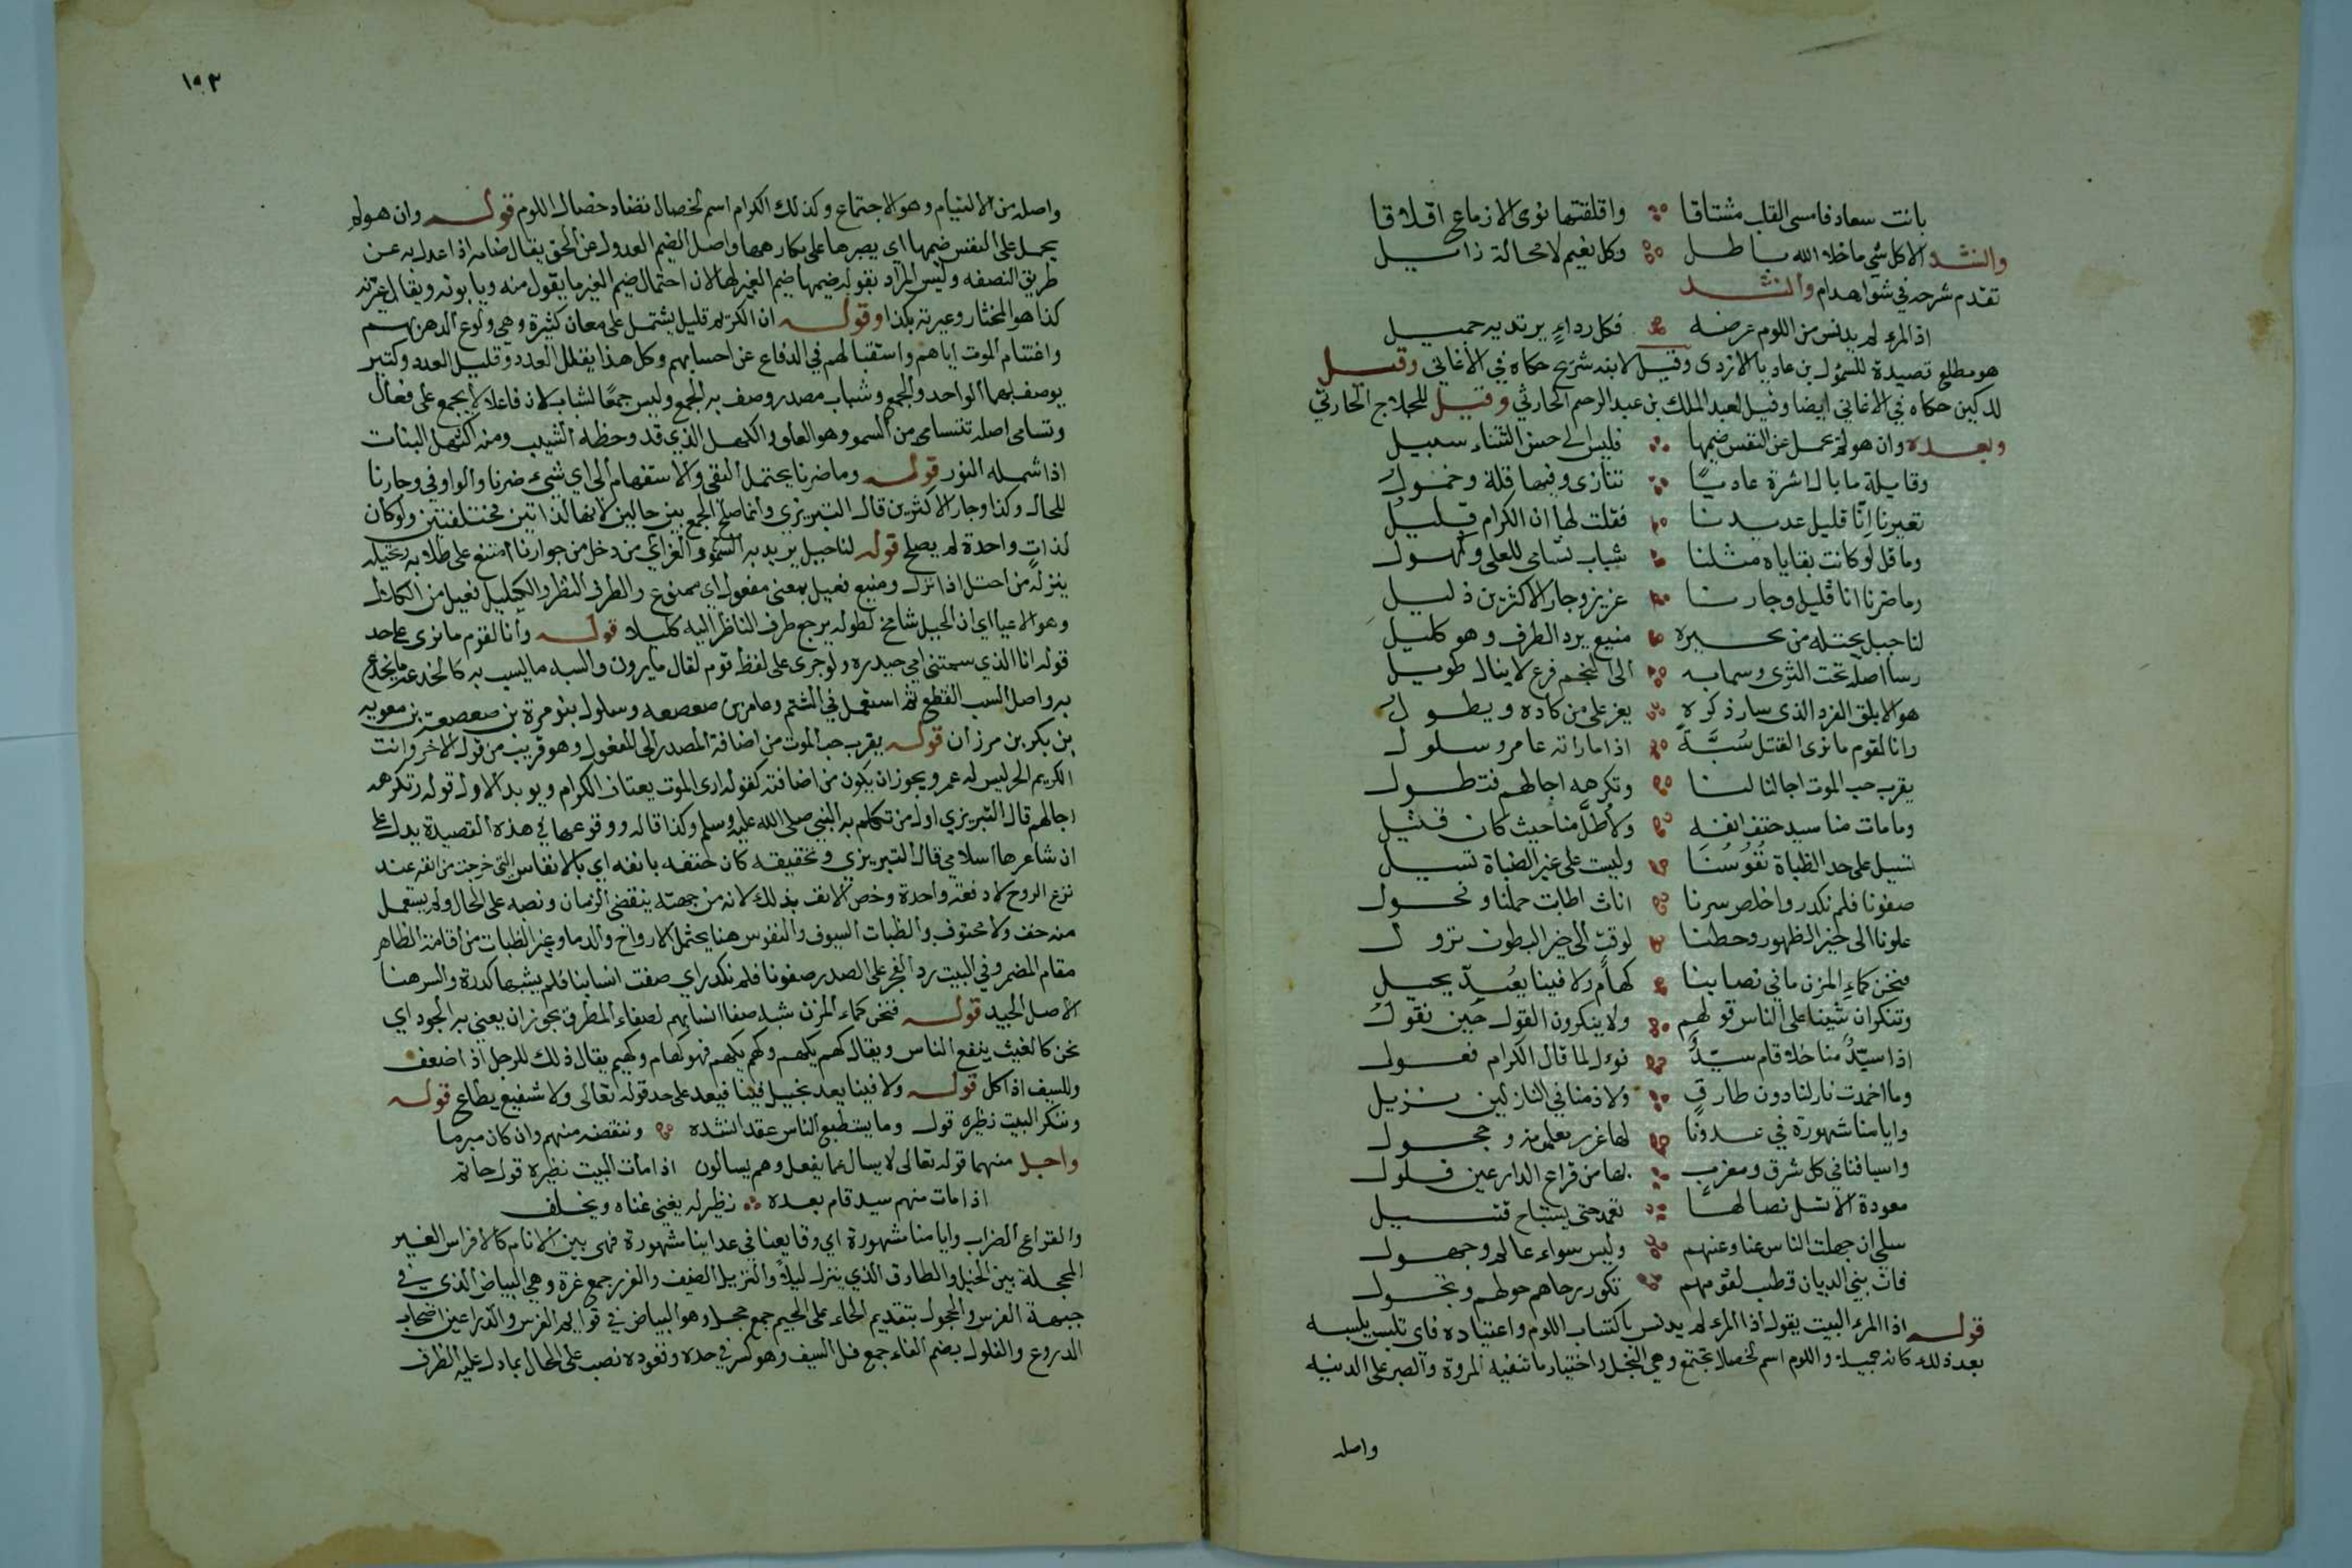 بانت سعاد فامسى القلب مشتاقا واقلقتها نوى الازماع اقلاقا
وانشد الاكل شي ماخلا الله باطل وكل نعيم لا محالة زايل
تقدم شرحه في شواهد ام وانشد
اذ المرء لم يدنس من اللوم عرضه فكل رداءٍ يرتديه جميل
هو مطلع قصيدة للسمؤل بن عاديا الازدى وقيل لابنه شريح حكاه في الأغاني وقيل
لدكين حكاه في الاغاني ايضا وقيل لعبد الملك بن عبد الرحيم الحارثي وقيل للجلاح الحارثي
وبعده وان هو لم يحمل عن النفس ضيمها فليس الى حسن الثناء سبيل
وقايلة ما بال اشرة عاديا تنازى وفيها قلة وخمول
تعيرنا إنّا قليل عديدنا فقلت لها ان الكرام قليل
وما قل لو كانت بقاياه مثلنا شباب تسامى للعلى وكهول
وما ضرنا انا قليل وجارنا عزيز وجار الاكثرين ذليل
لنا جبل يحتله من نجيره منيع يرد الطرف وهو كليل
رسا اصله تحت الثرى وسما به الى النجم فرع لا ينال طويل
هو الابلق الفرد الذى سار ذكره يعز على من كاده ويطول
وانا لقوم ما نرى القتل سُبَّةً اذا ما راته عامر وسلول
يقرب حب الموت اجالنا لنا وتكرهه اجالهم فتطول
وما مات منا سيد حتف انفه ولا طُلّ منا حيث كان قتيل
تسيل على حد الظباة نُفُوسُنَا وليست على غير الظباة تسيل
صفونا فلم نكدر واخلص سرنا اناث اطابت حملنا وفحول
علونا الى خير الظهور وحطنا لوقت الى خير البطون نزول
فنحن كماء المزن ما في نصابنا كهام ولا فينا يُعَدّ بخيل
وننكر ان شينا على الناس قولهم ولا ينكرون القول حين نقول
اذا سيّدٌ منا خلا قام سيّدٌ قؤل لما قال الكرام فعول
وما اخمدت نار لنا دون طارقٍ ولا ذمنا في النازلين نزيل
وايامنا مشهورة في عدونا لها غرر معلومة وحجول
واسيافنا في كل شرق ومغرب بها من قراع الدارعين فلول
معودة الا تسل نصالها فتغمد حتى يستباح قتيل
سلي ان جهلت الناس عنا وعنهم وليس سواء عالم وجهول
فان بني الديان قطب لقومهم تكور رحاهم حولهم وتجول
قوله اذا المرء البيت يقول اذا المرء لم يدنس باكتساب اللوم واعتياده فاى تلبس يلبسه
بعد ذلك كان جميلا واللوم اسم لخصال تجتمع وهي البخل واختيار ما تنفيه المروة والصبر على الدنيه
واصله
١٥٣
واصله من الالتيام وهو الاجتماع وكذلك الكرام اسم لخصال تضاد خصال اللوم قوله وان هو لم
يحمل على النفس ضيمها اي يصبرها على مكارهها واصل الضيم العدول عن الحق يقال ضامه اذا عدل به عن
طريق النصفه وليس المراد بقوله ضيمها ضيم الغير لها لان احتمال ضيم الغير ما يقول منه ويا بونه ويقال عيرته
كذا هو المختار وعيرته بكذا وقوله ان الكرام قليل يشتمل على معان كثيرة وهي ولوع الدهر بهم
واغتنام الموت اياهم واستقبالهم في الدفاع عن احسابهم وكل هذا يقلل العدد وقليل العدد وكثير
يوصف بهما الواحد والجمع وشباب مصدر وصف به الجمع وليس جمعًا لشاب لان فاعلا لا يجمع على فعال
وتسامى اصله تتسامى من السمو وهو العلو والكهل الذي قد وخطه الشيب ومنه اكتهل النبات
اذا شمله النور قوله وما ضرنا يحتمل النفى والاستفهام الى اي شيء ضرنا والواو في وجارنا
للحال وكذا وجار الاكثرين قال التبريزي وانما صلح الجمع بين حالين لانهما لذاتين مختلفتين ولو كان
لذات واحدة لم يصلح قوله لنا جبل يريد به السمو والعز اي من دخل من جوارنا امتنع على طلابه ويحتله
ينزله من احتل اذا نزل ومنيع فعيل بمعنى مفعول اى ممنوع والطرف النظر والكليل فعيل من الكلال
وهو الاعيا اي ان الجبل شامخ لطوله يرجع طرف الناظر اليه كليلا قوله وانا لقوم ما نرى على حد
قوله انا الذي سمتني امي حيدره ولو جرى على لفظ قوم لقال ما يرون والسبه ما يسب به كالخدعه ما يخدع
به واصل السب القطع ثم استعمل في الشتم وعامر بن صعصعه وسلول بنو مرة بن صعصعة بن معويه
بن بكر بن هوازن قوله يقرب حب الموت من اضافة المصدر الى المفعول وهو قريب من قول الاخر وانت
الكريم الحر ليس له عمر ويجوز ان يكون من اضافته كقوله ارى الموت يعتام الكرام ويويد الاول قوله وتكرهه
اجالهم قال التبريزي اول من تكلم به النبي صلى الله عليه وسلم وكذا قاله ووقوعها في هذه القصيدة يدل على
ان شاعرها اسلامي قال التبريزي وتحقيقه كان حتفه بانفه اي بالانفاس التي خرجت من انفه عند
نزع الروح لا دفعة واحدة وخص الانف بذلك لانه من جهته ينقضى الزمان ونصبه على الحال ولم يستعمل
منه حتف ولا محتوف والظبات السيوف والنفوس هنا يحتمل الارواح والدما وغير الظبات من اقامة الظاهر
مقام المضمر وفي البيت رد العجز على الصدر صفونا فلم نكدر اي صفت انسابنا فلم يشبها كدرة والسر هنا
الاصل الجيد قوله فنحن كماء المزن شبه صفا انسابهم لصفاء المطر ويجوز ان يعني به الجود اي
نحن كالغيث ينفع الناس ويقال كهم يكهم وكهم يكهم فهو كهام وكهيم يقال ذلك للرجل اذا ضعف
وللسيف اذا كل قوله ولا فينا يعد بخيل فينا فيعد على حد قوله تعالى ولا شفيع يطاع قوله
وننكر البيت نظيره قول وما يستطيع الناس عقدا نشده وننقضه منهم وان كان مبرما
واجل منهما قوله تعالى لا يسال عما يفعل وهم يسالون اذا مات البيت نظيره قول حاتم
اذا مات منهم سيد قام بعده نظير له يغني غناه ويخلف
والقراع الضراب وايامنا مشهورة اي وقايعنا في عداينا مشهورة فهي بين الانام كالافراس الغير
المحجلة بين الخيل والطارق الذي ينزل ليلاً والنزيل الضيف والغرر جمع غرة وهي البياض الذي في
جبهة الفرس والحجول بتقديم الحاء على الجيم جمع حجل وهو البياض في قوايم الفرس والدارعين اصحاب
الدروع والفلول بضم الفاء جمع فل السيف وهو كسر في حده ومعوده نصب على الحال بما دل عليه الظرف